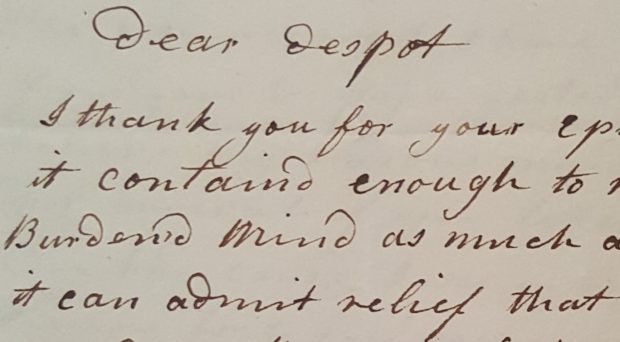 Dear Despot
I thank you for your ep
it containd enough to
Burden'd Mind as much a
it can admit relief that